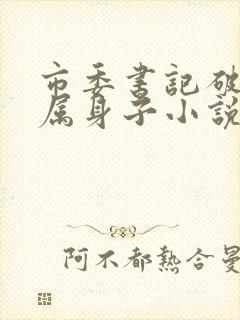 市委書記破
属身子小説
阿不都熱合曼